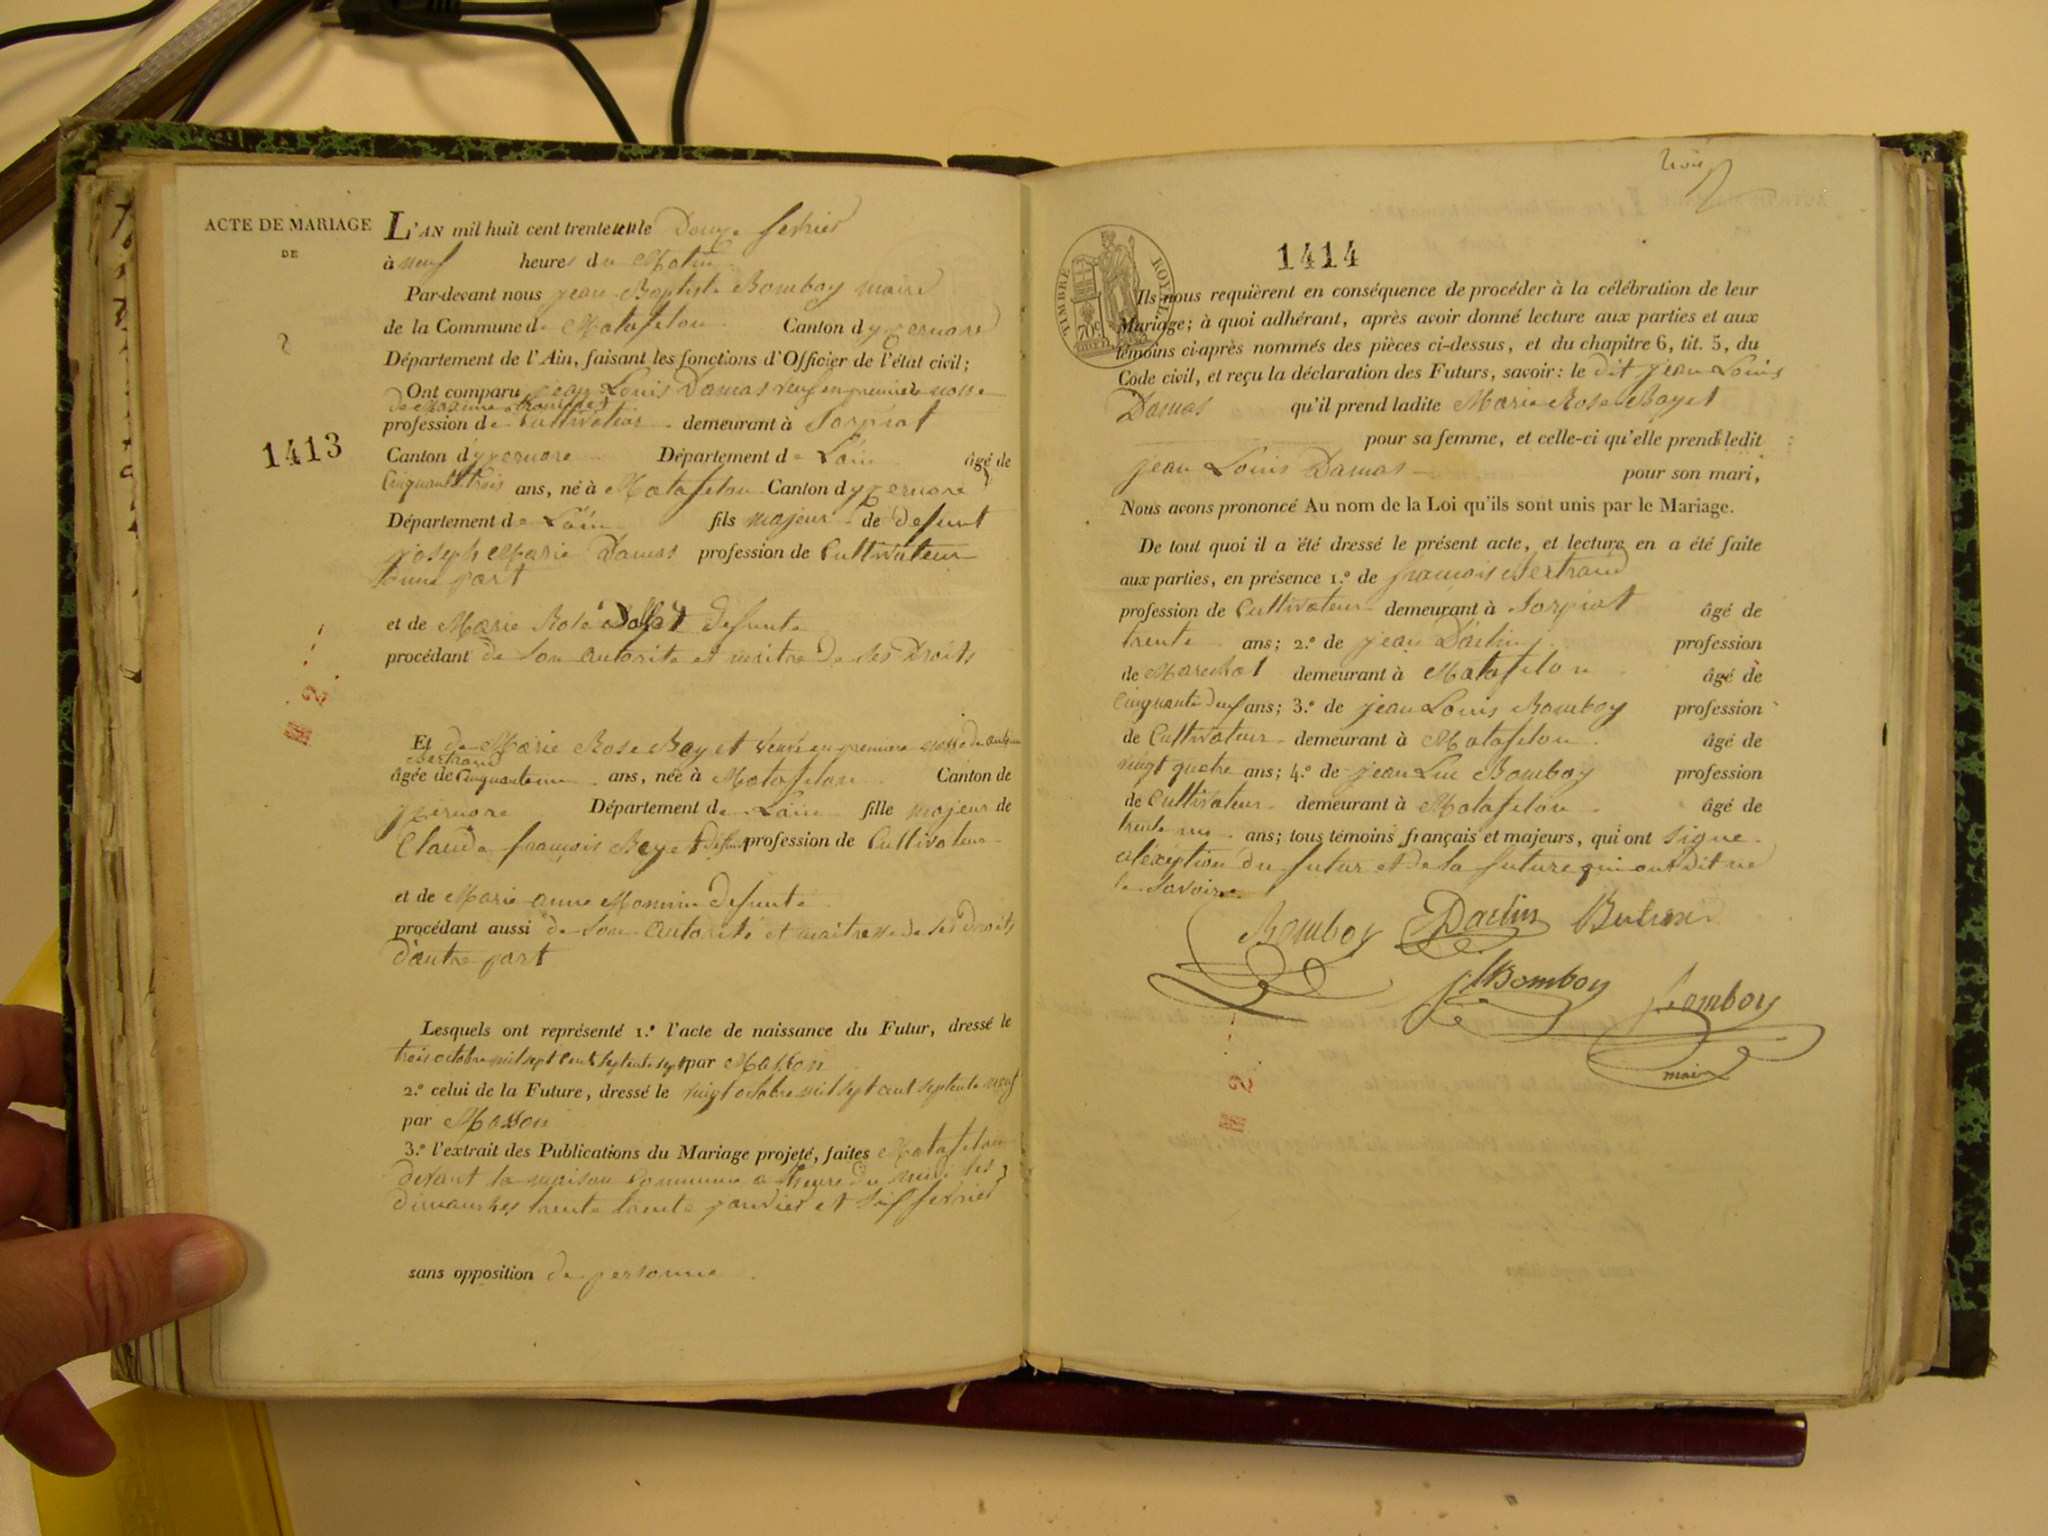 ACTE DE MARIAGE
DE
2
1413
L'AN mil huit cent trente un le Douze fevrier
à neuf heures du Matin
Par-devant nous jean Baptiste Bomboy maire
de la Commune de Matafelon Canton d'yzernore
Département de l'Ain, faisant les fonctions d'Officier de l'état civil;
Ont comparu jean Louis Damas veuf en premiere nosse
de
profession de Cultivateur demeurant à Sorpiat
Canton d'yzernore Département de Lain âgé de
Cinquante trois ans, né à Matafelon Canton d'yzernore
Département de Lain fils majeur de defunt
joseph Marie Damas profession de Cultivateur
d'une part
et de Marie Rose defunte
procédant de son autorite et maitre de ses Droits
Et de Marie Rose Bayet veuve en premiere nosse de antoine
Bertrand
âgée de Cinquante un ans, née à Matafelon Canton de
yzernore Département de Lain fille majeur de
Claude françois Bayet defunt profession de Cultivateur
et de Marie anne Monnin defunte
procédant aussi de son autorité et maitresse de ses droits
d'autre part
Lesquels ont représenté 1.º l'acte de naissance du Futur, dressé le
trois octobre mil sept cent septente sept par Masson
2.º celui de la Future, dressé le vingt octobre mil sept cent septente neuf
par Masson
3.º l'extrait des Publications du Mariage projeté, faites Matafelon
devant la maison commune a l'heure du midi les
dimanches trente trente janvier et six fevrier
sans opposition de personne
trois
TIMBRE ROYAL
70 c
1414
Ils nous requièrent en conséquence de procéder à la célébration de leur
Mariage; à quoi adhérant, après avoir donné lecture aux parties et aux
témoins ci-après nommés des pièces ci-dessus, et du chapitre 6, tit. 5, du
Code civil, et reçu la déclaration des Futurs, savoir: le dit jean Louis
Damas qu'il prend ladite Marie Rose Bayet
pour sa femme, et celle-ci qu'elle prend ledit
jean Louis Damas pour son mari,
Nous avons prononcé Au nom de la Loi qu'ils sont unis par le Mariage.
De tout quoi il a été dressé le présent acte, et lecture en a été faite
aux parties, en présence 1.º de francois Bertrand
profession de Cultivateur demeurant à Sorpiat âgé de
trente ans; 2.º de jean Darlin profession
de Marechal demeurant à Matafelon âgé de
Cinquante deux ans; 3.º de jean Louis Bomboy profession
de Cultivateur demeurant à Matafelon âgé de
vingt quatre ans; 4.º de jean Luc Bomboy profession
de Cultivateur demeurant à Matafelon âgé de
trente un ans; tous témoins français et majeurs, qui ont signe
alexeption du futur et de la future qui ont dit ne
le savoire
Bomboy Darlin Bertrand
Bomboy Bomboy
maire